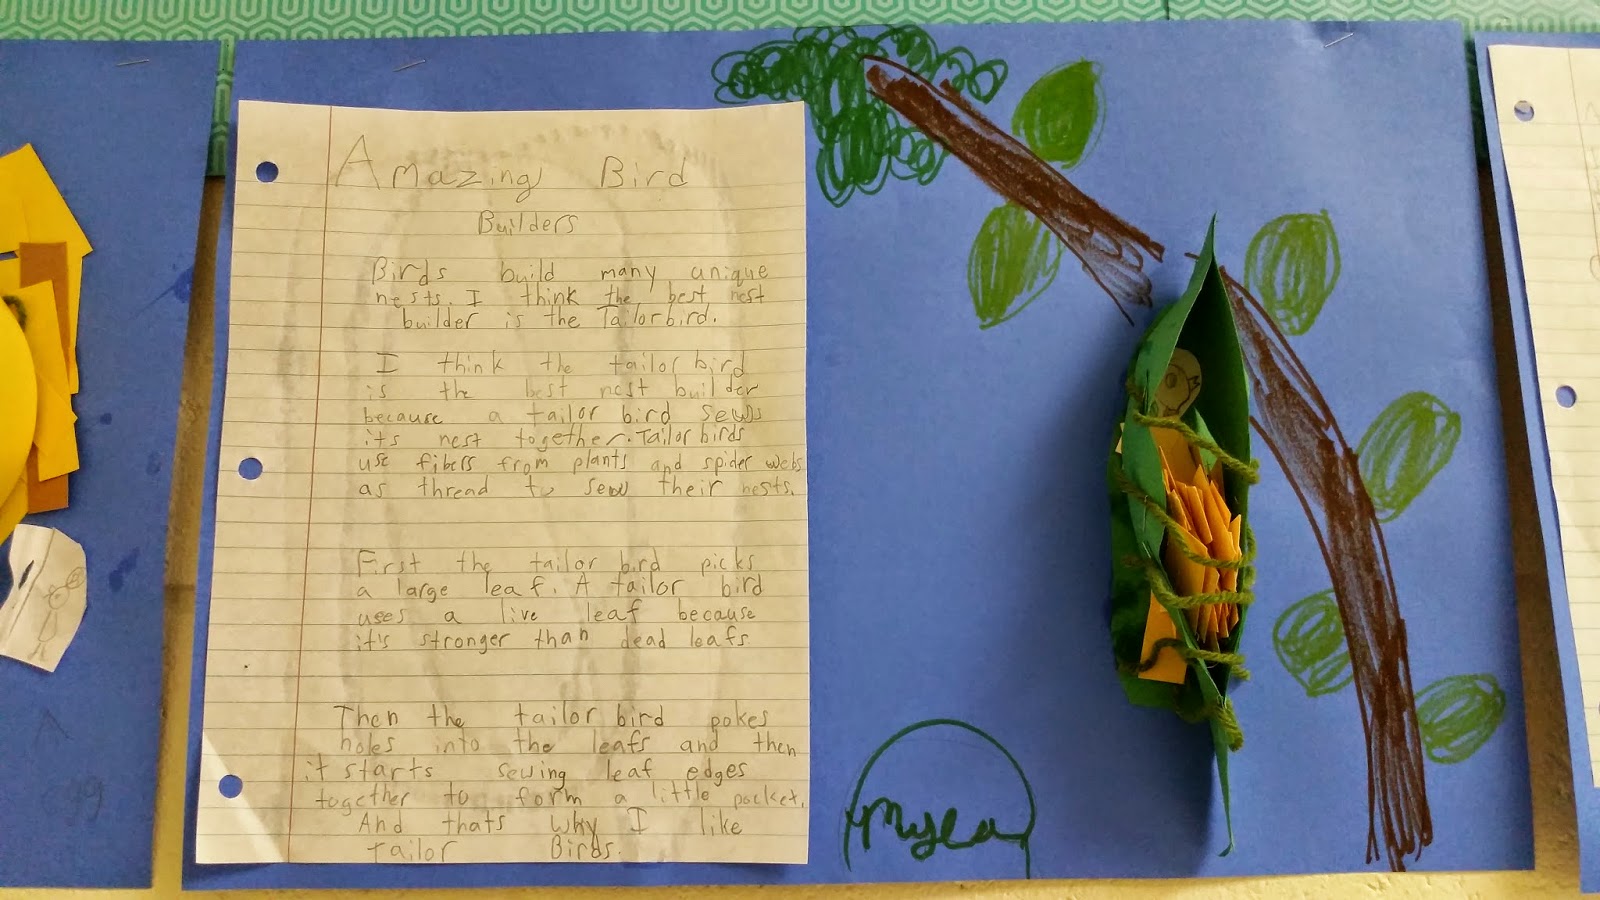 Amazing Bird
Builders
Birds build many unique
nests. I think the best nest
builder is the Tailorbird.
I think the tailor bird
is the best nest builder
because a tailor bird sews
its nest together. Tailor birds
use fibers from plants and spider webs
as thread to sew their nests.
First the tailor bird picks
a large leaf. A tailor bird
uses a live leaf because
it's stronger than dead leafs
Then the tailor bird pokes
holes into the leafs and then
it starts sewing leaf edges
together to form a little pocket.
And thats why I like
tailor Birds.
Mylea